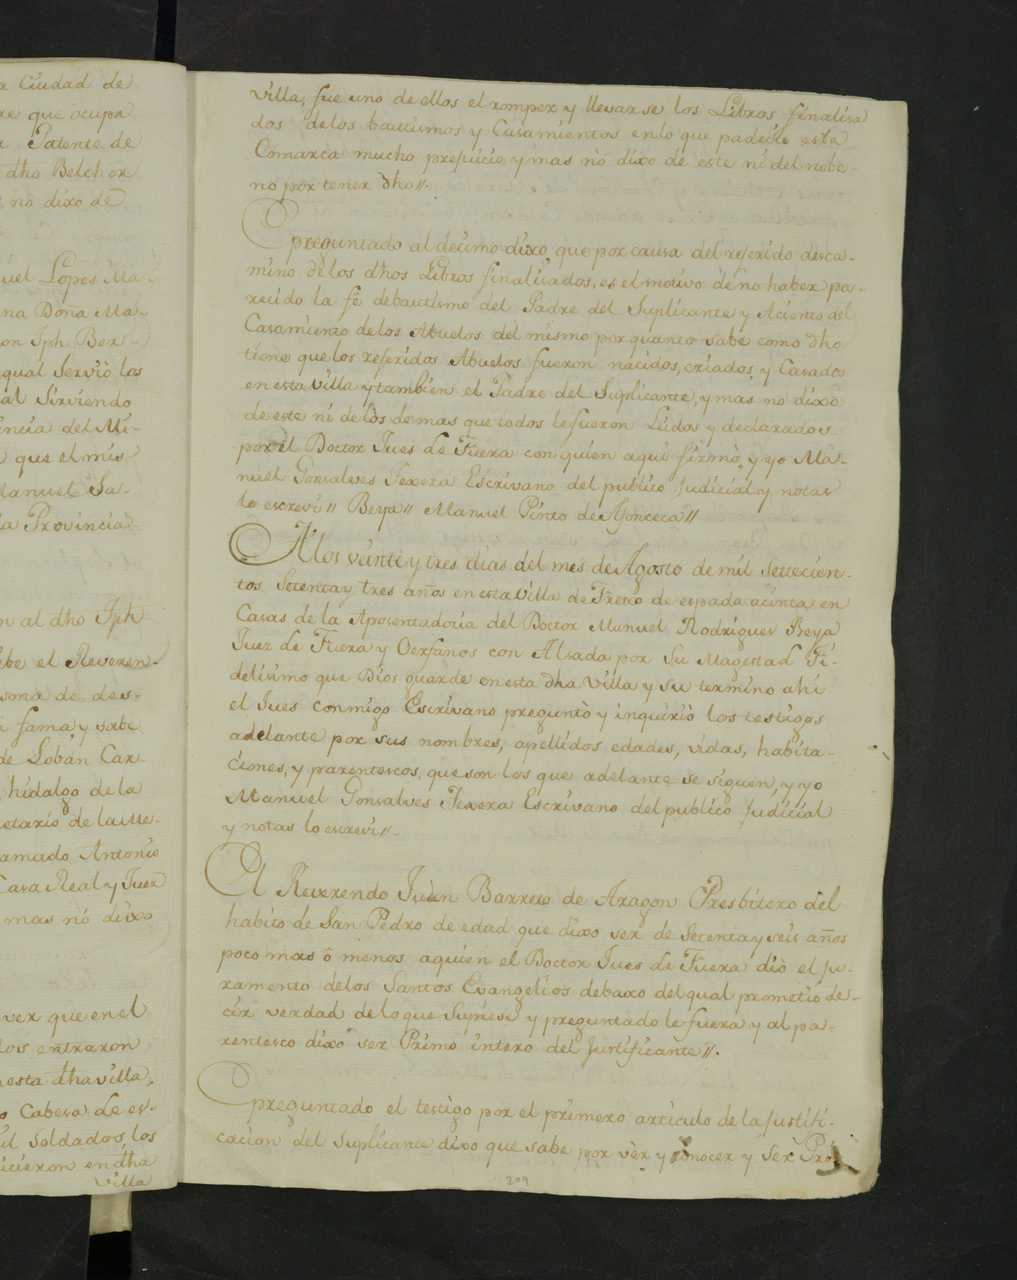 a Ciudad de
re que ocupa
Patente de
dho Belchor
no dixo de
uel Lopes Ma-
na Doña Ma-
on Jph Ber-
qual Serviò los
al Sirviendo
encia del Mi-
que el mis
Manuel Sa-
la Provincia
n al dho Jph
be el Reveren-
sma de des-
fama y sabe
de Lobán Car-
hidalgo de la
etario de la Me-
amado Antonio
Casa Real y Juez
mas nò dixo
ver que en el
los entraron
esta dha villa,
o Cabesa de es-
il Soldados, los
icieron en dha
villa
villa, fue uno de ellos el romper y llevar se los Libros finalisa
dos de los bautismos y Casamientos en lo que padeciò esta
Comarca mucho prejuicio y mas nò dixo de este ni del nobe-
no por tener dho//.
E preguntado al decimo dixo que por causa del referido desca-
mino de los dhos Libros finalisados, es el motivo de no haber pa-
recido la fê de bautismo del Padre del Suplicante y Aciento del
Casamiento de los Abuelos del mismo por quanto sabe como dho
tiene que los referidos Abuelos fueron nacidos, criados y Casados
en esta villa y tambien el Padre del Suplicante, y mas no dixo
de este ni de los demas que todos le fueron Leidos y declarados
por el Doctor Jues de Fuera con quien aqui firmò, y yo Ma-
nuel Gonsalves Texera Escrivano del publico Judicial y notas
lo escrevi // Beya // Manuel Pinto de Afonceca //
A los veinte y tres dias del mes de Agosto de mil Setecien-
tos Setenta y tres años en esta villa de Frexo de espada acinta en
Casas de la Aposentadoria del Doctor Manuel Rodriguez Beya
Juez de Fuera y Oerfanos con Alsada por Su Magestad Fi-
delisimo que Dios guarde en esta dha villa y su termino ahi
el Jues conmigo Escrivano preguntò y inquiriò los testigos
adelante por sus nombres, apellidos edades, vidas, habita-
ciones, y parentescos, que son los que adelante se siguen, y yo
Manuel Gonsalves Texera Escrivano del publico Judicial
y notas lo escrevi //.
El Reverendo Juan Barreto de Aragon Presbitero del
habito de San Pedro de edad que dixo ser de Setenta y seis años
poco mas ô menos aquien el Doctor Jues de Fuera diò el ju-
ramento de los Santos Evangelios debaxo del qual prometiò de-
cir verdad de lo que Supiese y preguntado le fuera y al pa-
rentesco dixo ser Primo intero del Justificante //.
E preguntado el testigo por el primero articulo de la Justifi-
cacion del Suplicante dixo que sabe por ver y conocer y ser Pri-
209